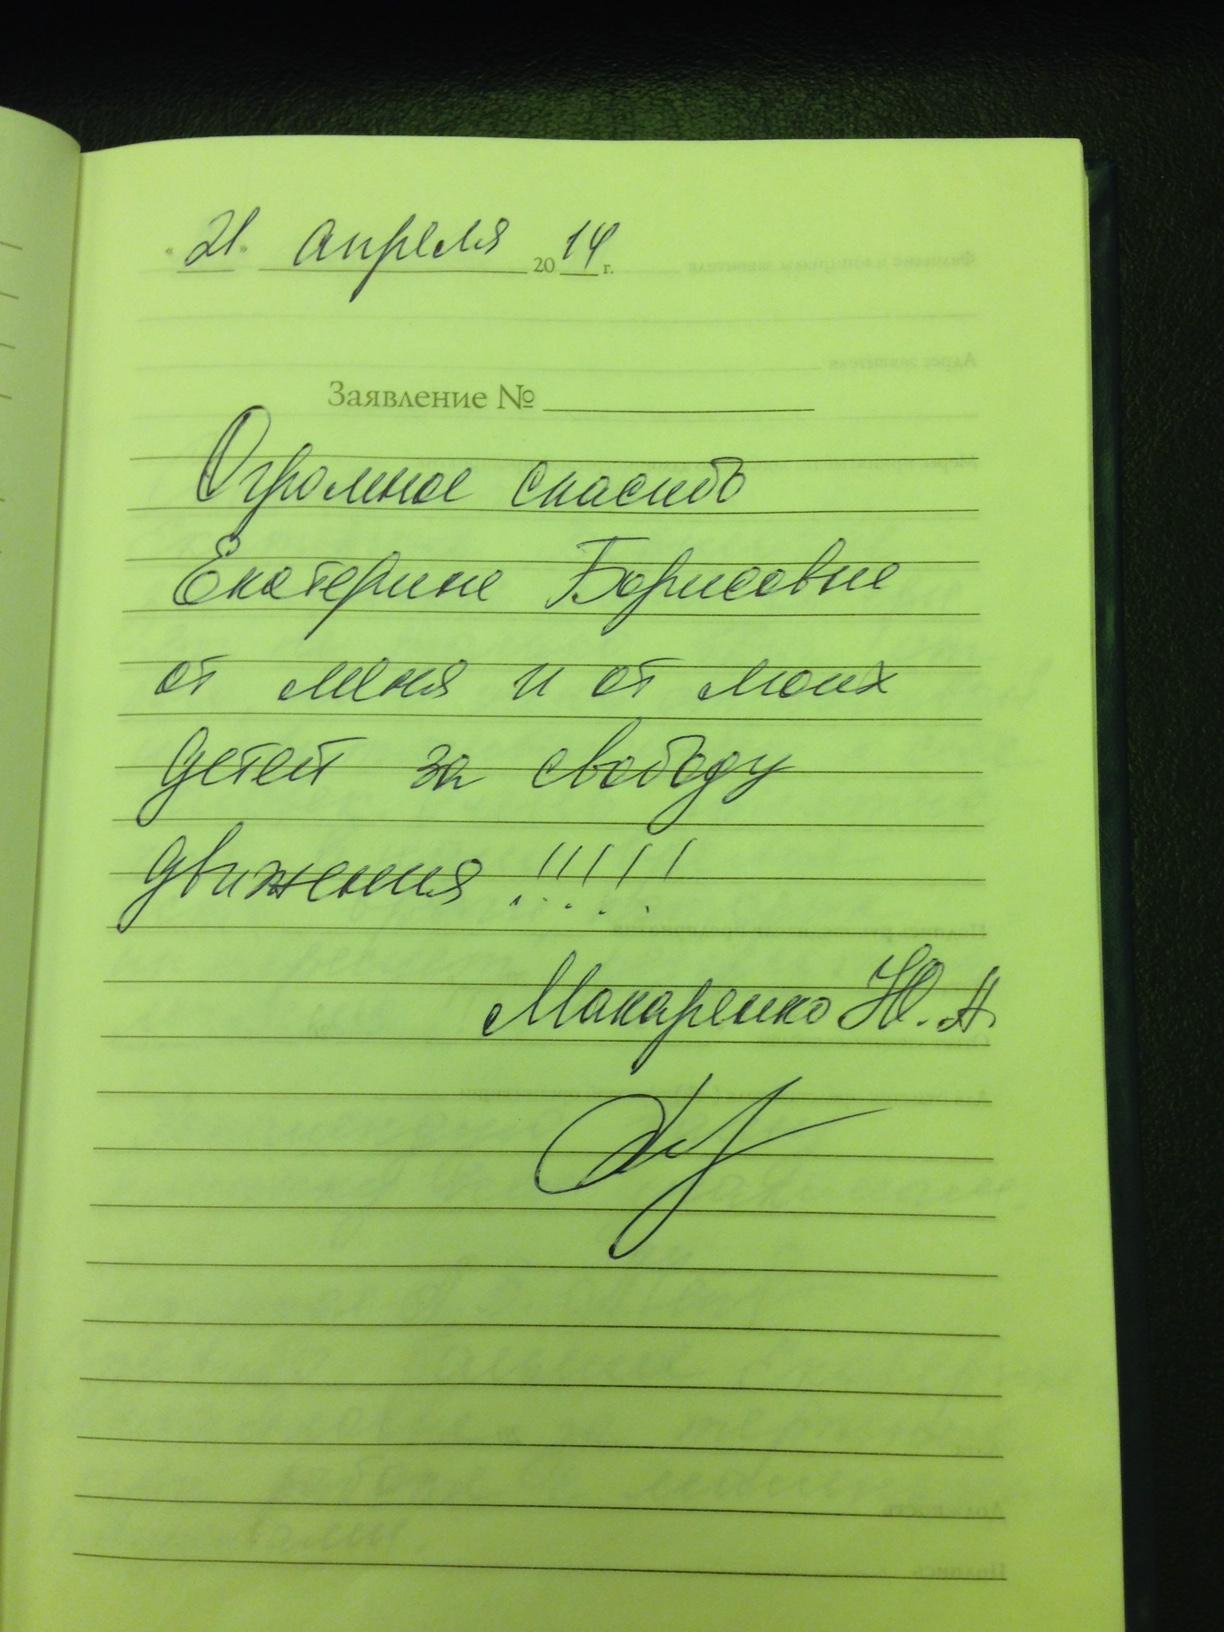 « 21 » апреля 2014 г.
Заявление №
Огромное спасибо
Екатерине Борисовне
от меня и от моих
детей за свободу
движения !!!!!
Макаренко Ю.А.